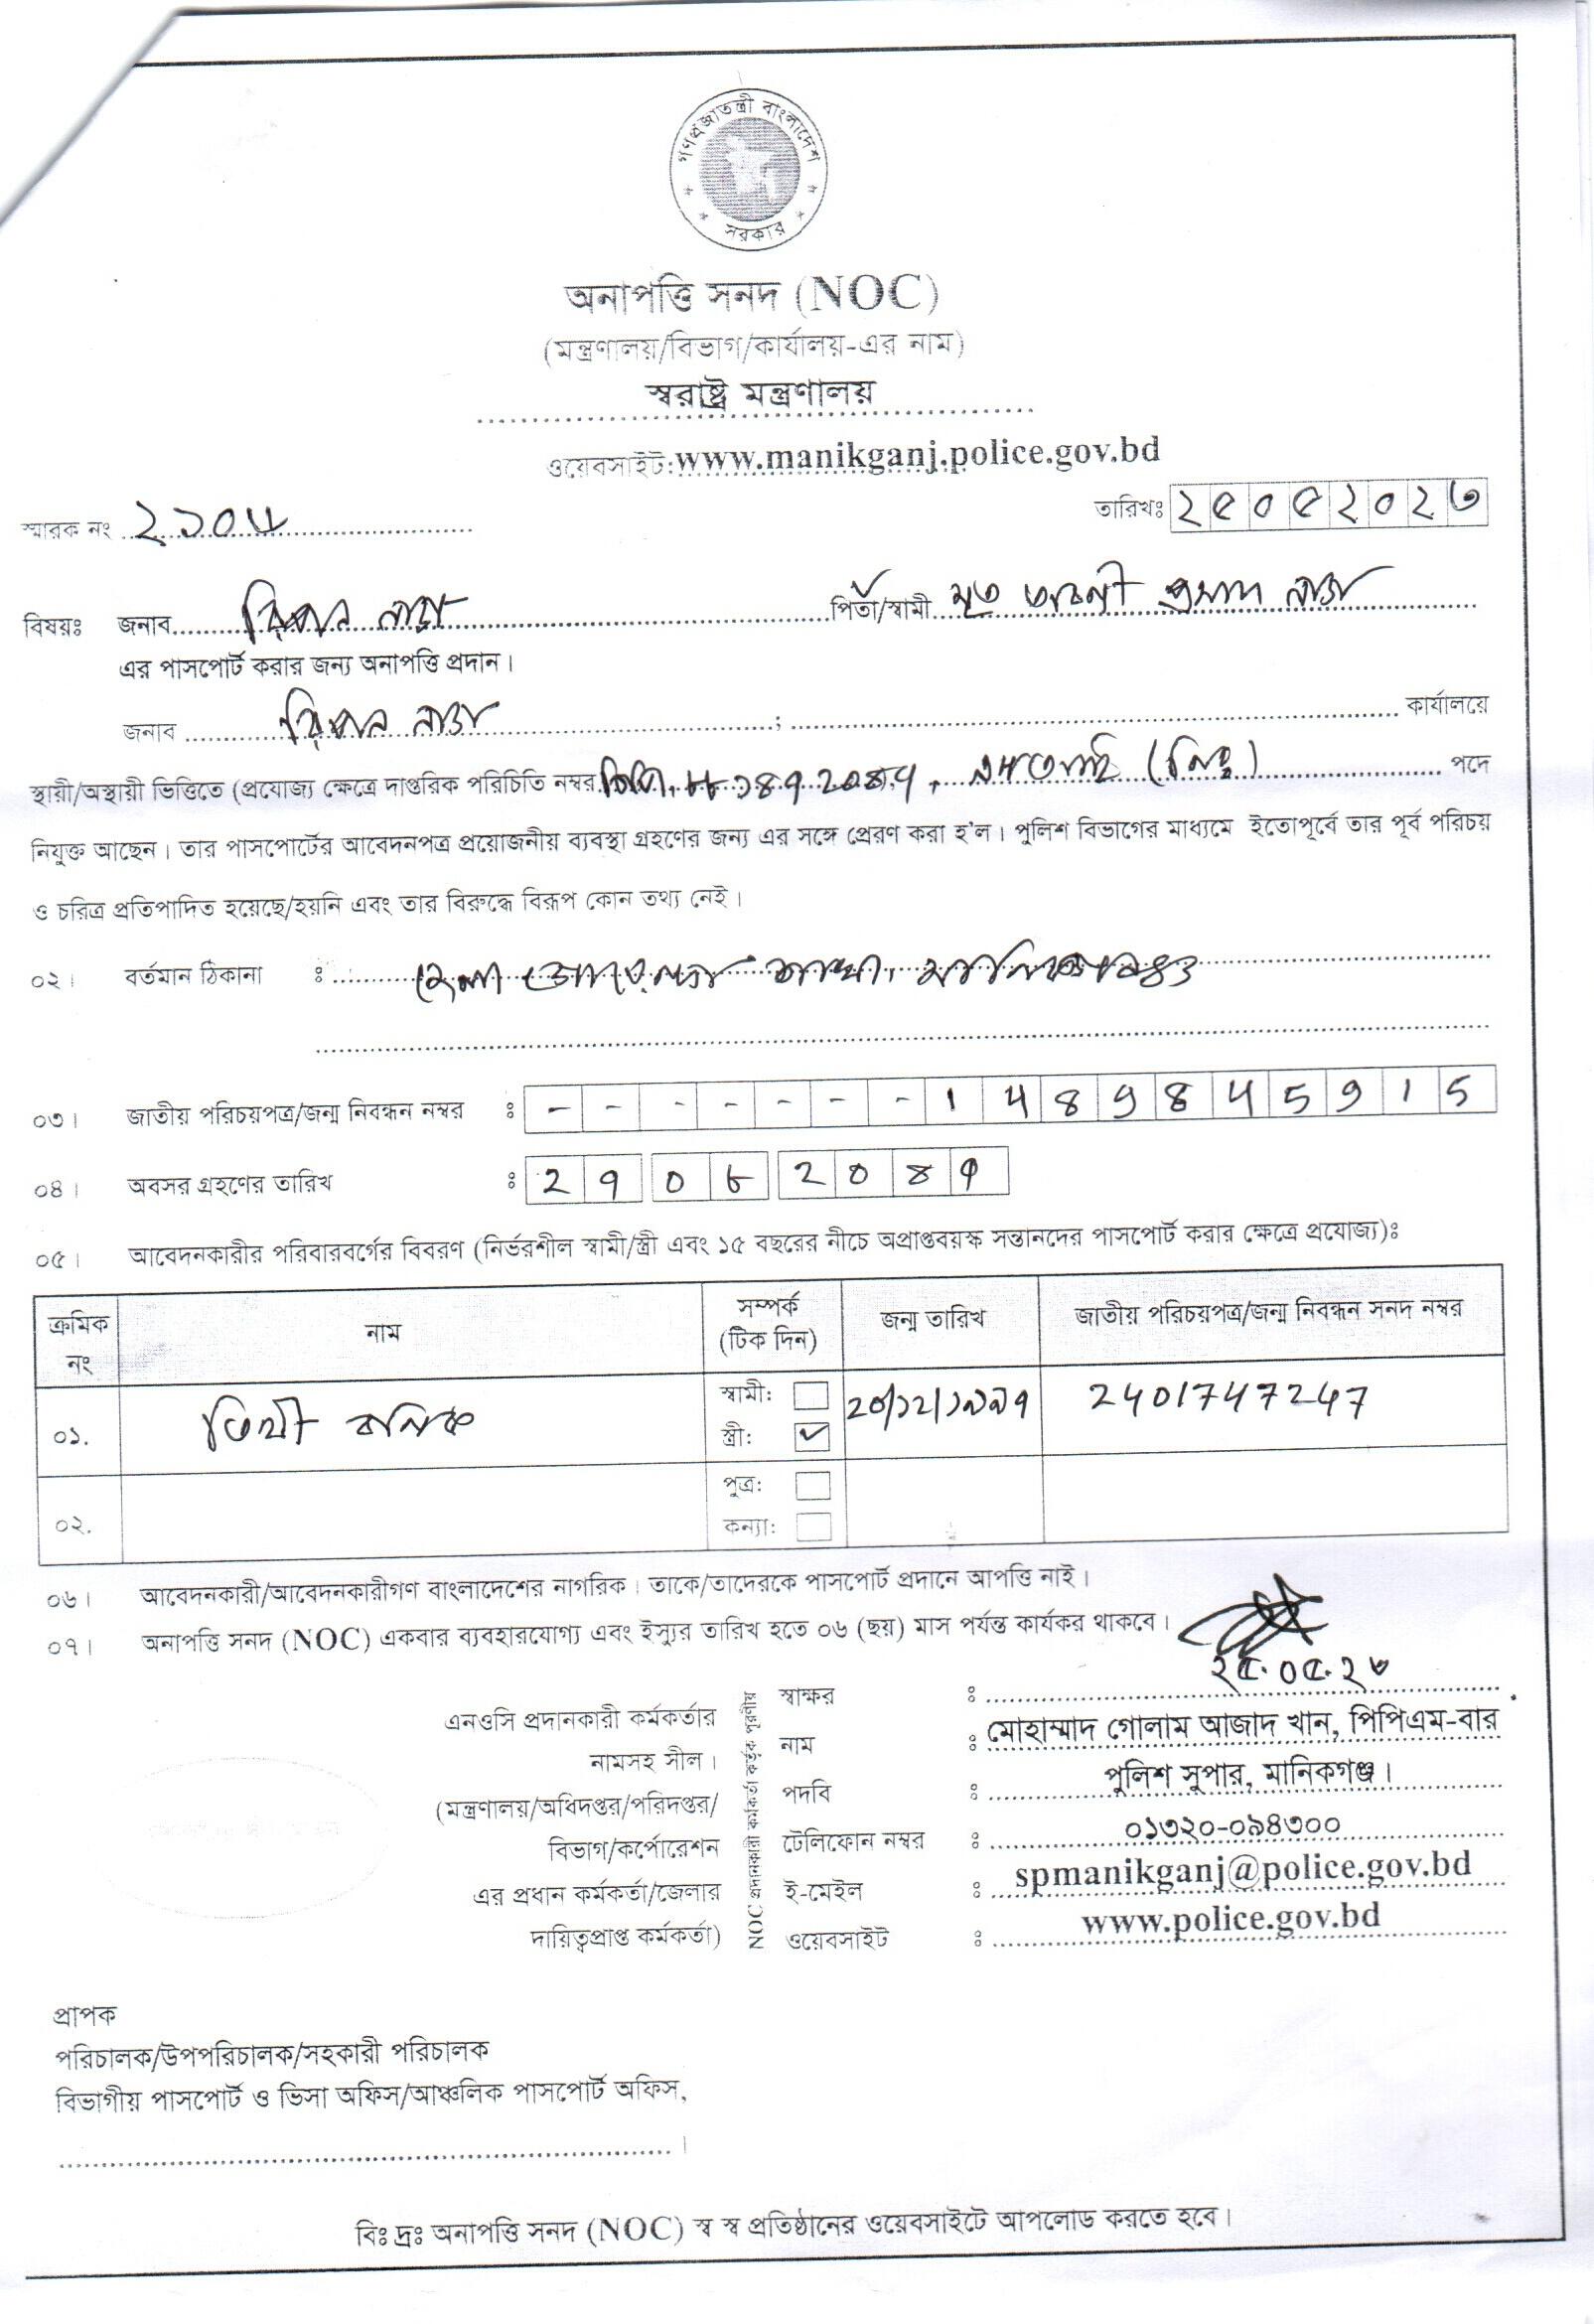 গণপ্রজাতন্ত্রী বাংলাদেশ
সরকার
অনাপত্তি সনদ (NOC)
(মন্ত্রণালয়/বিভাগ/কার্যালয়-এর নাম)
স্বরাষ্ট্র মন্ত্রণালয়
ওয়েবসাইট: www.manikganj.police.gov.bd
স্মারক নং
তারিখঃ ২৫০৫২০২৩
বিষয়ঃ জনাব পিতা/স্বামী মৃত প্রসাদ
এর পাসপোর্ট করার জন্য অনাপত্তি প্রদান।
জনাব ; কার্যালয়ে
স্থায়ী/অস্থায়ী ভিত্তিতে (প্রযোজ্য ক্ষেত্রে দাপ্তরিক পরিচিতি নম্বর পদে
নিযুক্ত আছেন। তার পাসপোর্টের আবেদনপত্র প্রয়োজনীয় ব্যবস্থা গ্রহণের জন্য এর সঙ্গে প্রেরণ করা হ'ল। পুলিশ বিভাগের মাধ্যমে ইতোপূর্বে তার পূর্ব পরিচয়
ও চরিত্র প্রতিপাদিত হয়েছে/হয়নি এবং তার বিরুদ্ধে বিরূপ কোন তথ্য নেই।
০২। বর্তমান ঠিকানা ঃ জেলা গোয়েন্দা শাখা, মানিকগঞ্জ
০৩। জাতীয় পরিচয়পত্র/জন্ম নিবন্ধন নম্বর ঃ - - - - - - -
০৪। অবসর গ্রহণের তারিখ ঃ
০৫। আবেদনকারীর পরিবারবর্গের বিবরণ (নির্ভরশীল স্বামী/স্ত্রী এবং ১৫ বছরের নীচে অপ্রাপ্তবয়স্ক সন্তানদের পাসপোর্ট করার ক্ষেত্রে প্রযোজ্য)ঃ
ক্রমিক নং নাম সম্পর্ক (টিক দিন) জন্ম তারিখ জাতীয় পরিচয়পত্র/জন্ম নিবন্ধন সনদ নম্বর
০১. তিথী বনিক স্বামী: স্ত্রী: ✓ 2401747247
০২. পুত্র: কন্যা:
০৬। আবেদনকারী/আবেদনকারীগণ বাংলাদেশের নাগরিক। তাকে/তাদেরকে পাসপোর্ট প্রদানে আপত্তি নাই।
০৭। অনাপত্তি সনদ (NOC) একবার ব্যবহারযোগ্য এবং ইস্যুর তারিখ হতে ০৬ (ছয়) মাস পর্যন্ত কার্যকর থাকবে।
২৫.০৫.২৩
এনওসি প্রদানকারী কর্মকর্তার
নামসহ সীল।
(মন্ত্রণালয়/অধিদপ্তর/পরিদপ্তর/
বিভাগ/কর্পোরেশন
এর প্রধান কর্মকর্তা/জেলার
দায়িত্বপ্রাপ্ত কর্মকর্তা)
NOC প্রদানকারী কর্মকর্তা কর্তৃক পূরণীয়
স্বাক্ষর ঃ
নাম ঃ মোহাম্মাদ গোলাম আজাদ খান, পিপিএম-বার
পদবি ঃ পুলিশ সুপার, মানিকগঞ্জ।
টেলিফোন নম্বর ঃ ০১৩২০-০৯৪৩০০
ই-মেইল ঃ spmanikganj@police.gov.bd
ওয়েবসাইট ঃ www.police.gov.bd
প্রাপক
পরিচালক/উপপরিচালক/সহকারী পরিচালক
বিভাগীয় পাসপোর্ট ও ভিসা অফিস/আঞ্চলিক পাসপোর্ট অফিস,
।
বিঃ দ্রঃ অনাপত্তি সনদ (NOC) স্ব স্ব প্রতিষ্ঠানের ওয়েবসাইটে আপলোড করতে হবে।